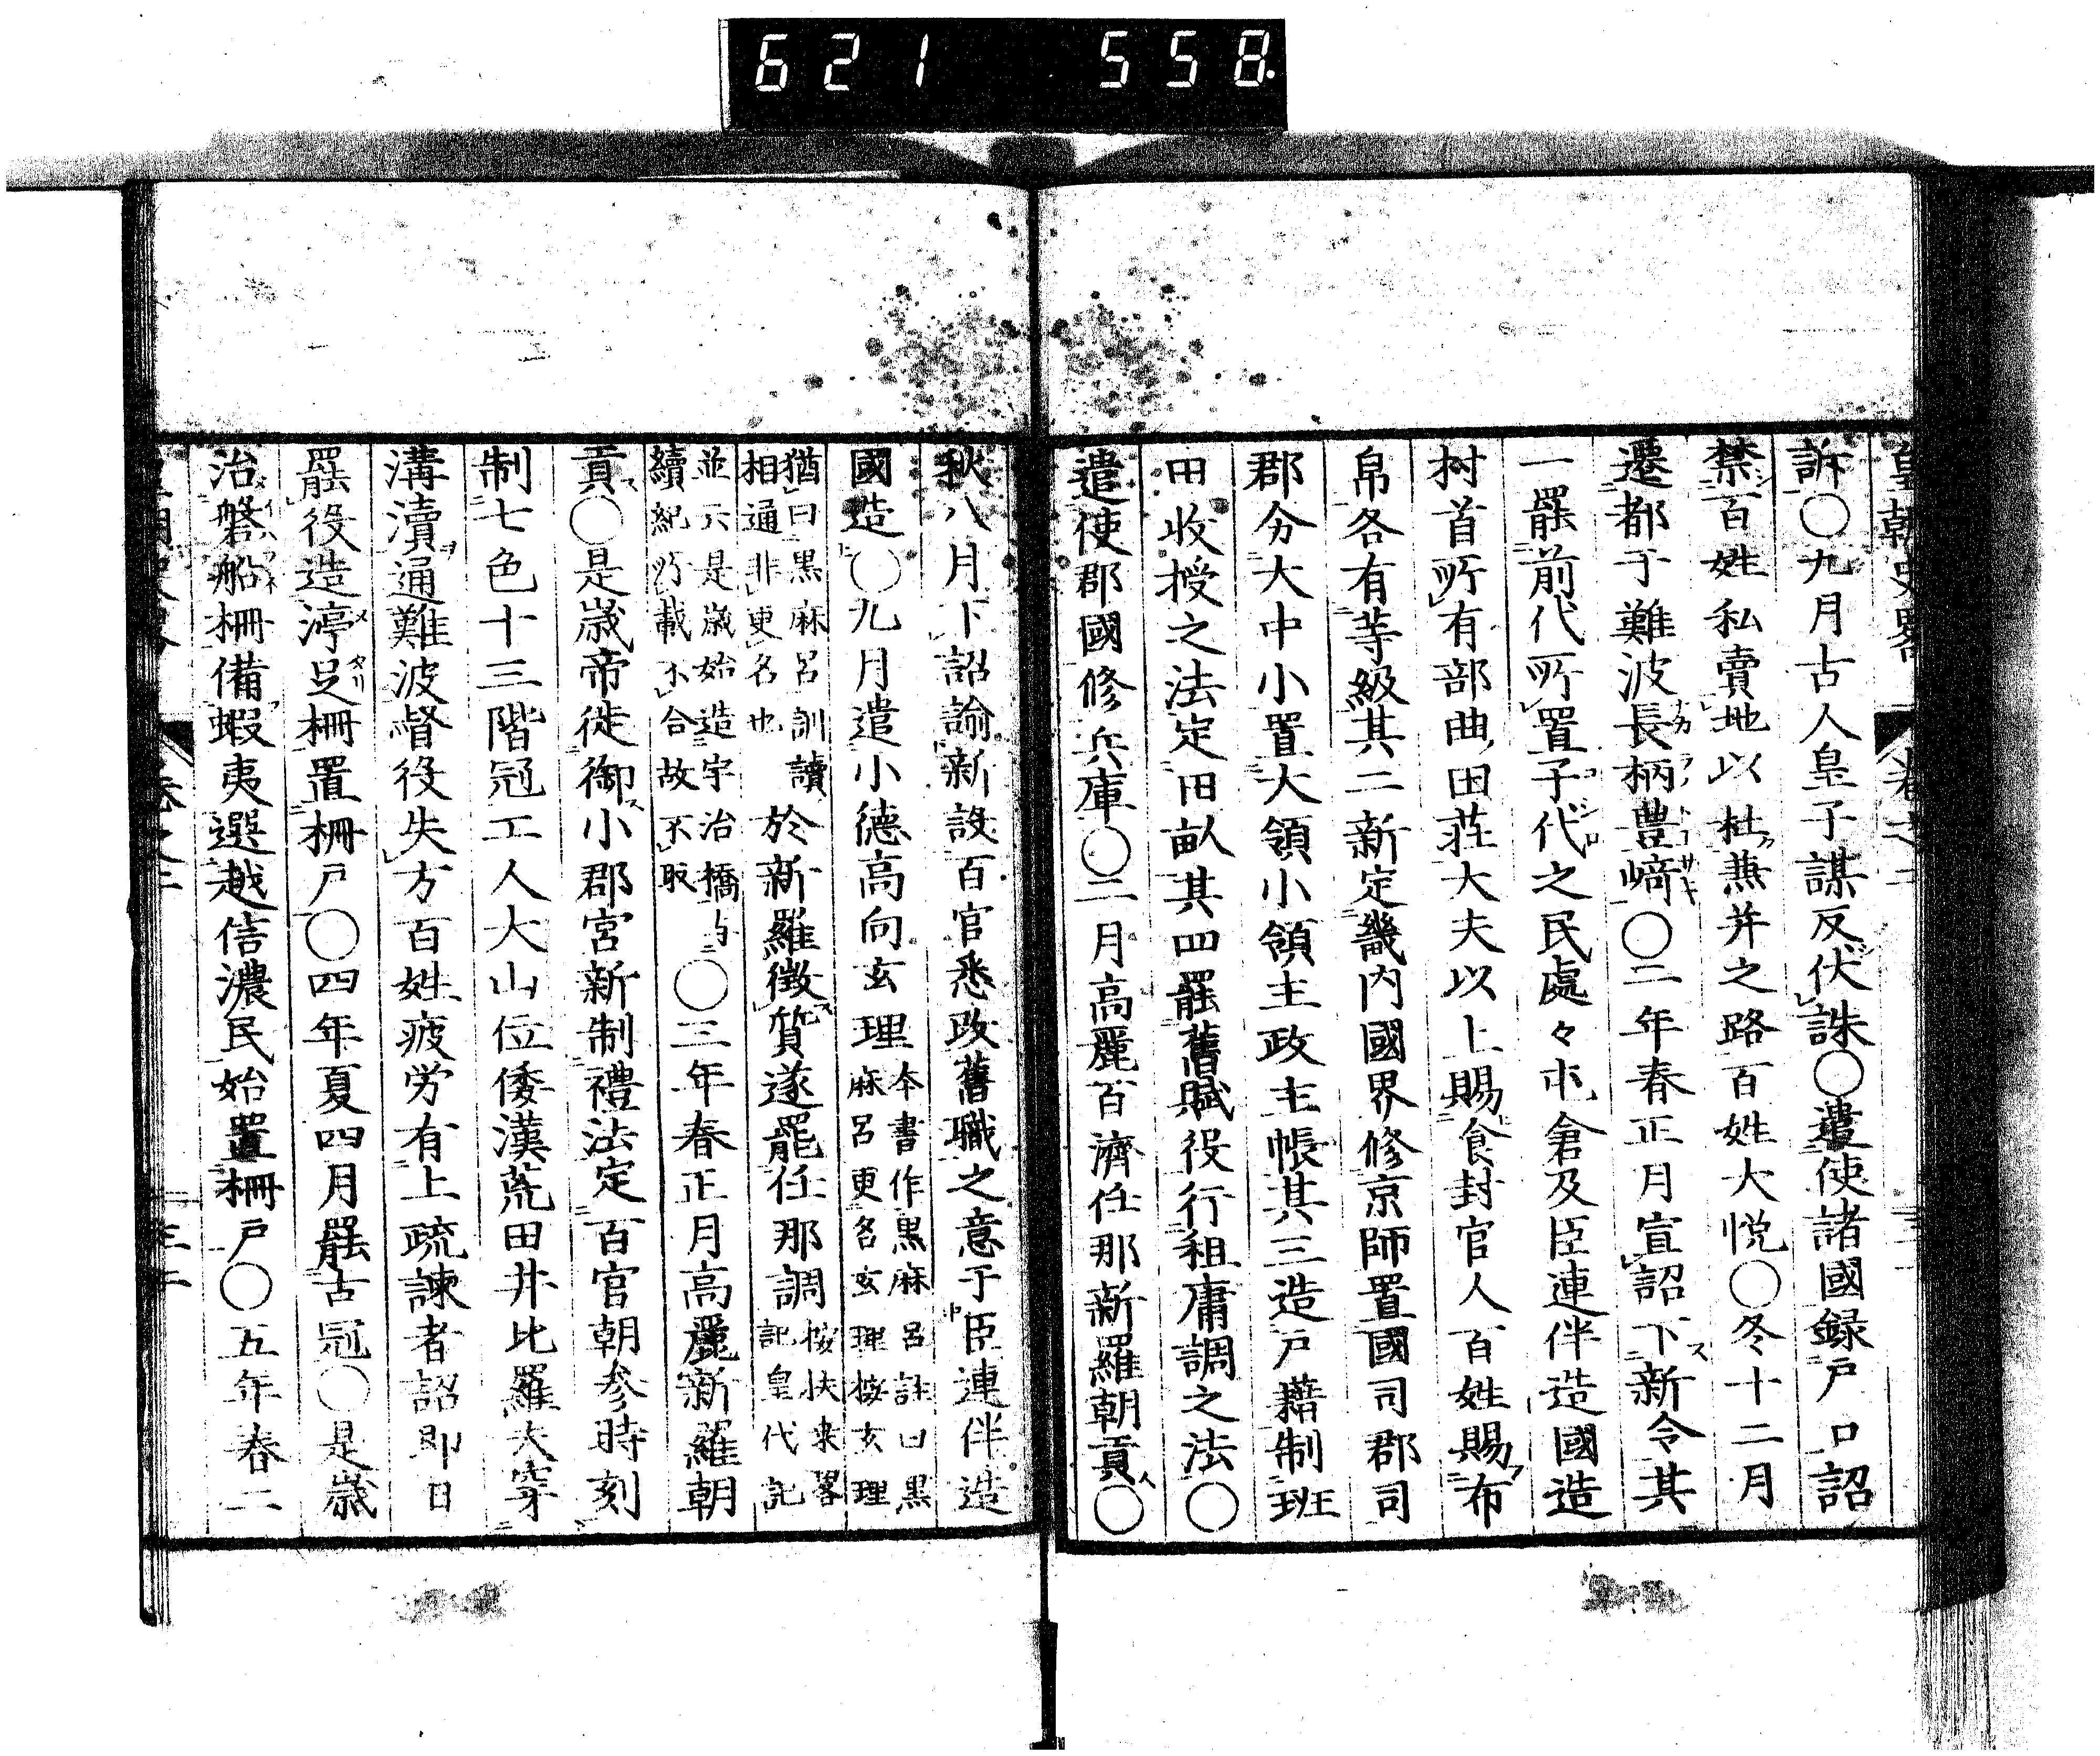 621 558.
訴○九月古人皇子謀反伏誅○遣使諸國録戸口詔
禁百姓私賣地以杜兼并之路百姓大悦○冬十二月
遷都于難波長柄豊﨑○二年春正月宣詔下新令其
一罷前代所置子代之民處々屯倉及臣連伴造國造
村首所有部曲田荘大夫以上賜食封官人百姓賜布
帛各有等級其二新定畿内國界修京師置國司郡司
郡分大中小置大領小領主政主帳其三造戸籍制班
田收授之法定田畝其四罷舊賦役行租庸調之法○
遣使郡國修兵庫○二月高麗百濟任那新羅朝貢○
秋八月下詔諭新設百官悉改舊職之意于臣連伴造
國造○九月遣小德高向玄理本書作黒麻呂註曰黒
麻呂更名玄理按玄理
猶曰黒麻呂訓讀
相通非更名也於新羅徴質遂罷任那調按扶桒畧
記皇代記
並云是歳始造宇治橋与
續紀所載不合故不取○三年春正月高麗新羅朝
貢○是歳帝徙御小郡宮新制禮法定百官朝參時刻
制七色十三階冠工人大山位倭漢荒田井比羅大穿
溝瀆通難波督役失方百姓疲労有上疏諫者詔即日
罷役造渟足柵置柵戸○四年夏四月罷古冠○是歳
治磐船柵備蝦夷選越信濃民始置柵戸○五年春二